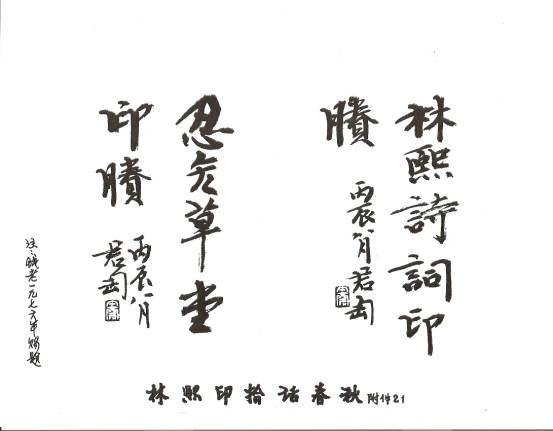 林熙詩詞印
賸
丙辰八月君匋
忍冬草堂
印賸
丙辰八月
君匋
注：钱老一九七六年赐题
林熙印拾话春秋附件21